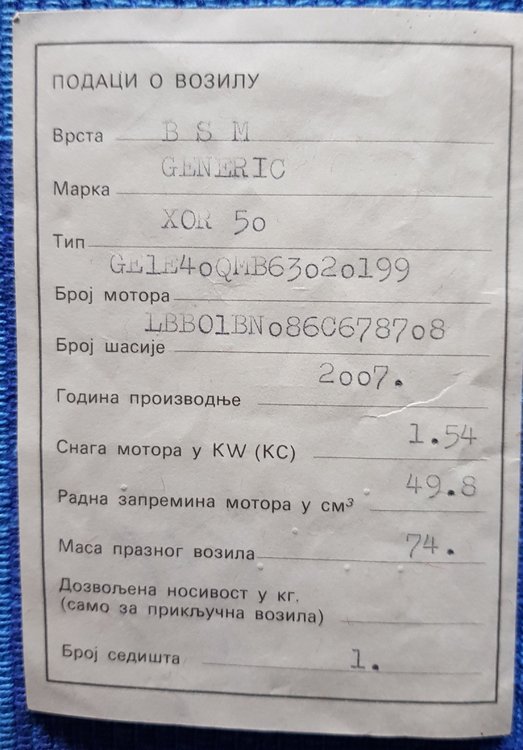 ПОДАЦИ О ВОЗИЛУ
Врста B S M
Марка GENERIC
Тип XOR 50
Број мотора GE1E40QMB63020199
Број шасије LBB01BN086C678708
Година производње 2007.
Снага мотора у KW (КС) 1.54
Радна запремина мотора у см³ 49.8
Маса празног возила 74.
Дозвољена носивост у кг.
(само за прикључна возила)
Број седишта 1.